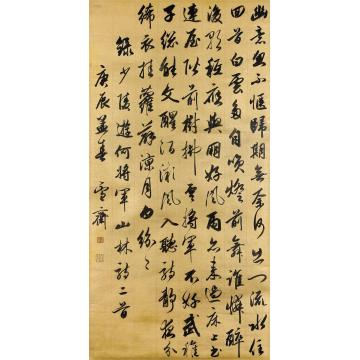 幽意忽不愜歸期無奈何出門流水住
回首白雲多自笑燈前舞誰憐醉
後歌祗應與朋好風雨亦來過床上書
連屋階前樹拂雲將軍不好武稚
子總能文醒酒微風入聽詩靜夜分
絺衣挂蘿薜涼月白紛紛
錄少陵遊何將軍山林詩二首
庚辰孟春 雪齋